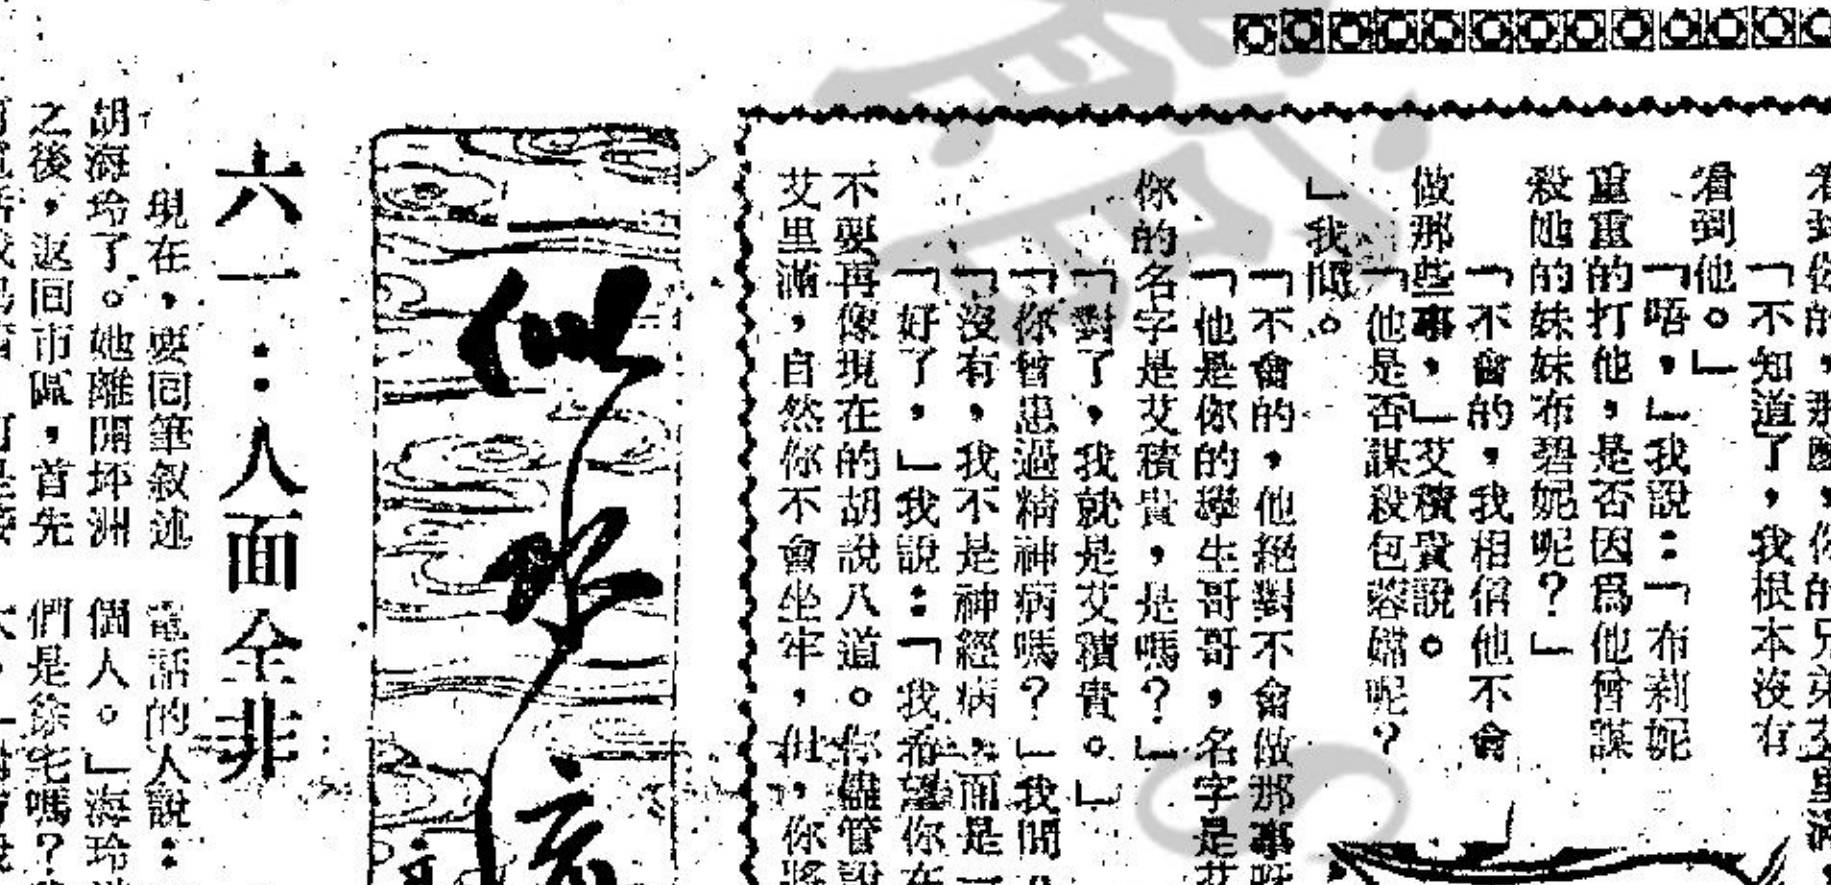 看到你的，那麼，你的兄弟艾里滿，
「不知道了，我根本沒有
看到他。」
「唔，」我說：「布莉妮
重重的打他，是否因爲他曾謀
殺她的妹妹布碧妮呢？」
「不會的，我相信他不會
做那些事，」艾積貴說。
「他是否謀殺包蓉嬋呢？
」我問。
「不會的，他絕對不會做那事呀
「他是你的孿生哥哥，名字是艾
你的名字是艾積貴，是嗎？」
「對了，我就是艾積貴。」
「你曾患過精神病嗎？」我問
「沒有，我不是神經病，而是一
「好了，」我說：「我希望你在
不要再像現在的胡說八道。你儘管說
艾里滿，自然你不會坐牢，但，你將
似水
六一：人面全非
現在，要回筆叙述
胡海玲了。她離開坪洲
之後，返回市區，首先
電話的人說：
個人。」海玲
們是徐宅嗎？